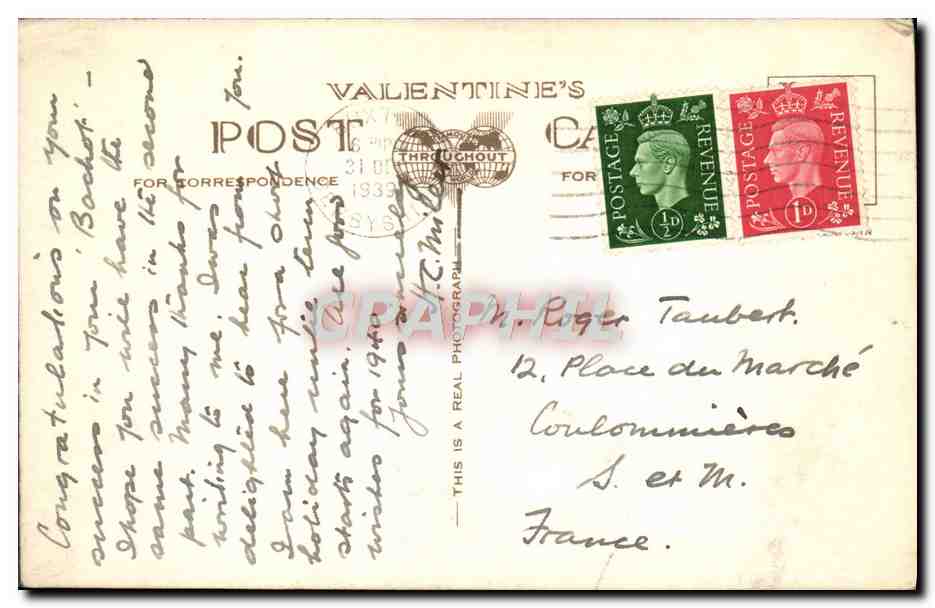 VALENTINE'S
POST CA
THROUGHOUT
FOR CORRESPONDENCE
FOR
6 PM
31 DE
1939
THIS IS A REAL PHOTOGRAPH
POSTAGE REVENUE
½D
POSTAGE REVENUE
1D
Congratulations on your
success in your 'Bachot' –
I hope you will have the
same success in the second
part. Many thanks for
writing to me. I was
delighted to hear from you.
I am here for a short
holiday until term
starts again. All good
wishes for 1940
Yours sincerely
H.C.
M. Roger Taubert.
12, Place du Marché
Coulommières
S. et M.
France.
CRAPHIL